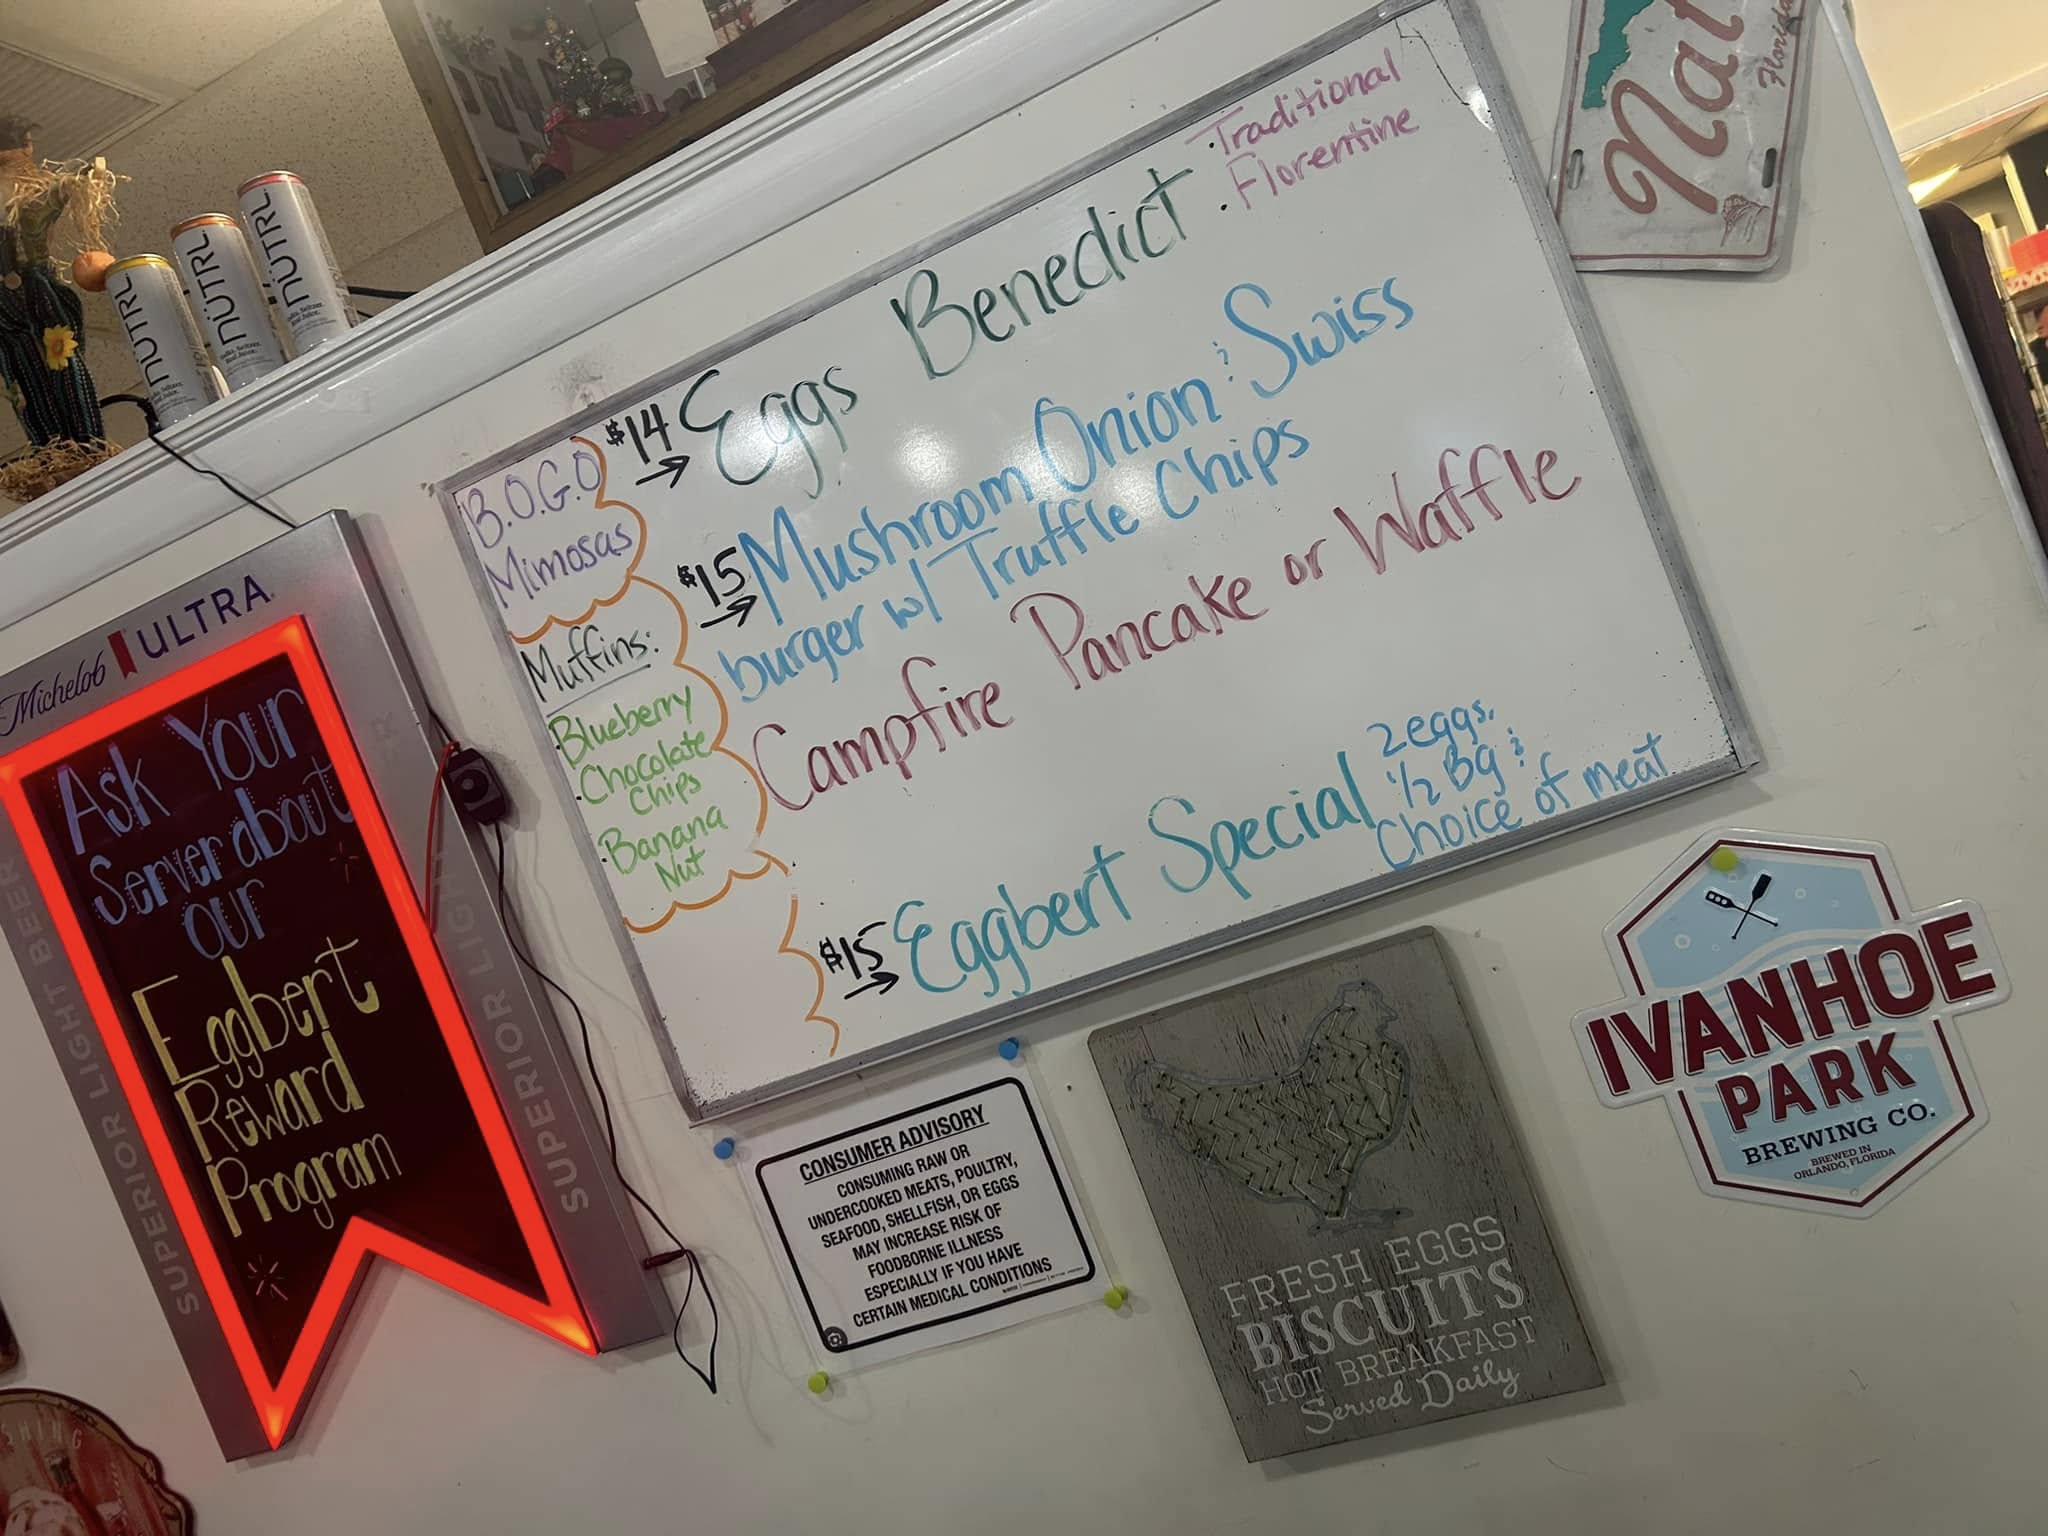 nüTRL.
nüTRL.
nüTRL.
Nat
Florida
B.O.G.O
Mimosas
Muffins:
·Blueberry
·Chocolate
Chips
·Banana
Nut
$14 → Eggs Benedict
·Traditional
·Florentine
$15 → Mushroom Onion & Swiss
burger w/ Truffle Chips
Campfire Pancake or Waffle
$15 → Eggbert Special
2 eggs,
1/2 BG &
Choice of meat
Michelob ULTRA
SUPERIOR LIGHT BEER
SUPERIOR LIGHT
Ask Your
Server about
our
Eggbert
Reward
Program
CONSUMER ADVISORY
CONSUMING RAW OR
UNDERCOOKED MEATS, POULTRY,
SEAFOOD, SHELLFISH, OR EGGS
MAY INCREASE RISK OF
FOODBORNE ILLNESS
ESPECIALLY IF YOU HAVE
CERTAIN MEDICAL CONDITIONS
FRESH EGGS
BISCUITS
HOT BREAKFAST
Served Daily
IVANHOE
PARK
BREWING CO.
BREWED IN
ORLANDO, FLORIDA